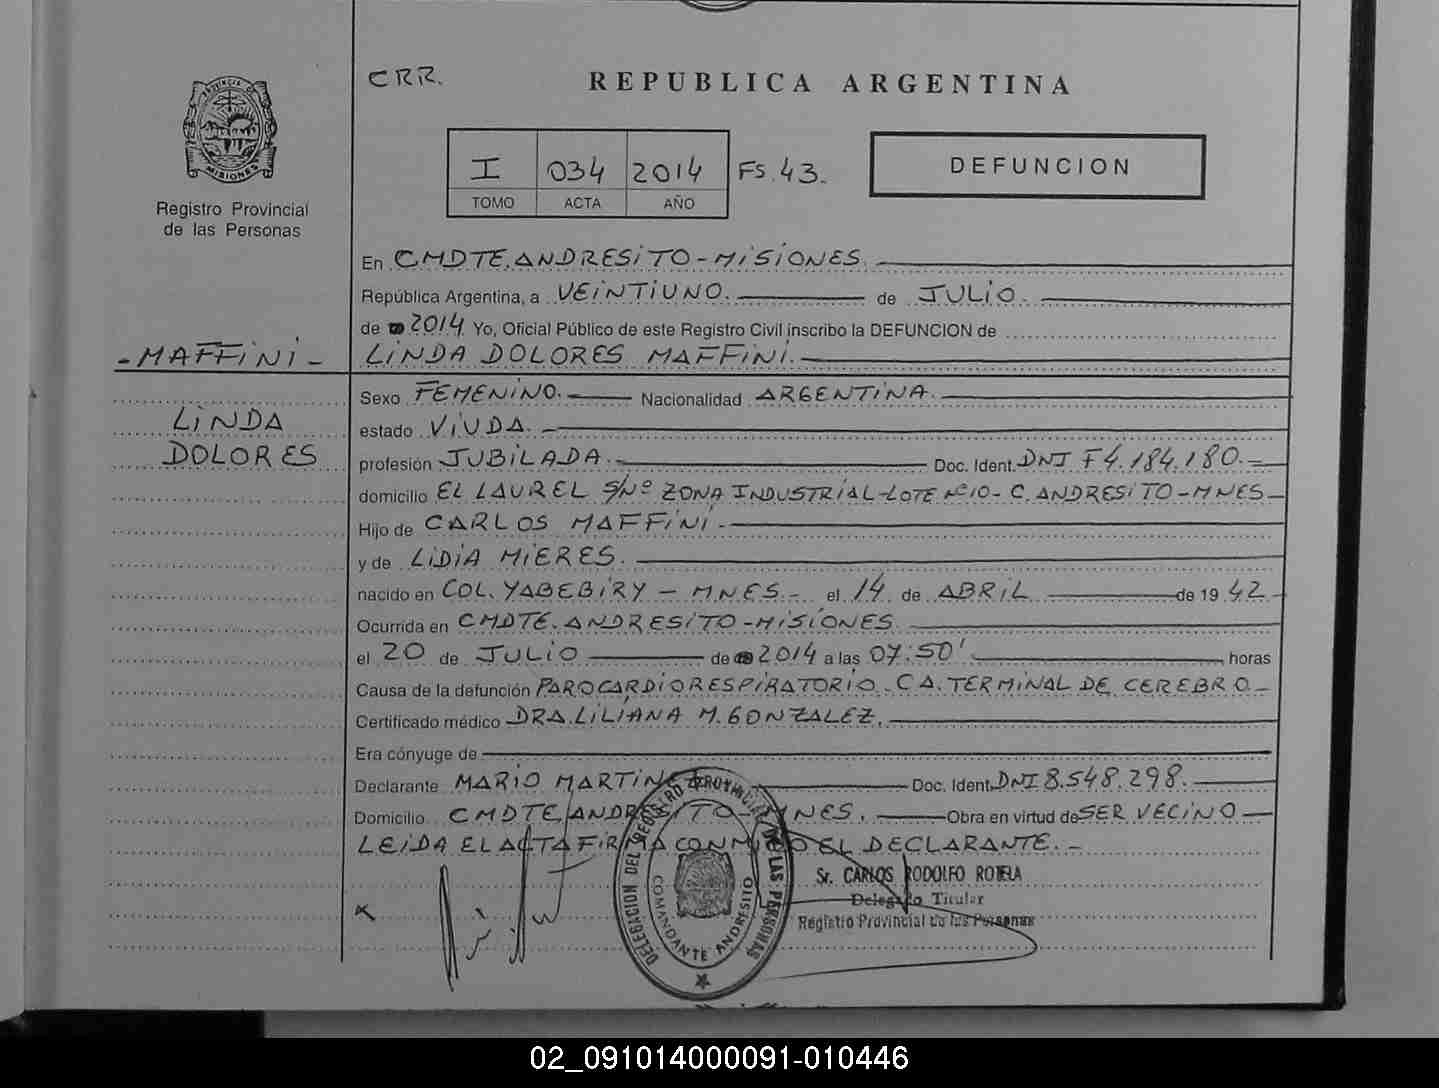 CRR.
REPUBLICA ARGENTINA
PROVINCIA DE
MISIONES
Registro Provincial
de las Personas
I 034 2014 FS. 43.
TOMO ACTA AÑO
DEFUNCION
En CMDTE. ANDRESITO - MISIONES.
República Argentina, a VEINTIUNO. de JULIO.
de 2014 Yo, Oficial Público de este Registro Civil inscribo la DEFUNCION de
- MAFFINI -
LINDA DOLORES MAFFINI.
LINDA
DOLORES
Sexo FEMENINO. Nacionalidad ARGENTINA.
estado VIUDA.
profesión JUBILADA. Doc. Ident. DNI F4.184.180.
domicilio EL LAUREL S/Nº ZONA INDUSTRIAL-LOTE Nº10- C. ANDRESITO - MNES
Hijo de CARLOS MAFFINI.
y de LIDIA MIERES.
nacido en COL. YABEBIRY - MNES. el 14 de ABRIL de 19 42
Ocurrida en CMDTE. ANDRESITO - MISIONES.
el 20 de JULIO de 2014 a las 07:50' horas
Causa de la defunción PAROCARDIORESPIRATORIO. CA. TERMINAL DE CEREBRO
Certificado médico DRA. LILIANA M. GONZALEZ.
Era cónyuge de
Declarante MARIO MARTINEZ Doc. Ident. DNI 8.548.298.
Domicilio CMDTE. ANDRESITO MNES. Obra en virtud de SER VECINO
LEIDA EL ACTA FIRMA CONMIGO EL DECLARANTE.
DELEGACION DEL REGISTRO PROVINCIAL DE LAS PERSONAS
COMANDANTE ANDRESITO
Sr. CARLOS RODOLFO ROTELA
Delegado Titular
Registro Provincial de las Personas
02_091014000091-010446